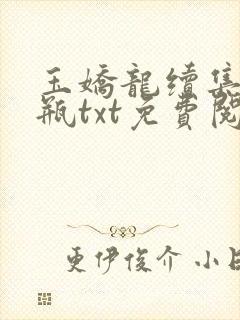 玉嬌龍續集
瓶txt免費閱
更伊俊介 小